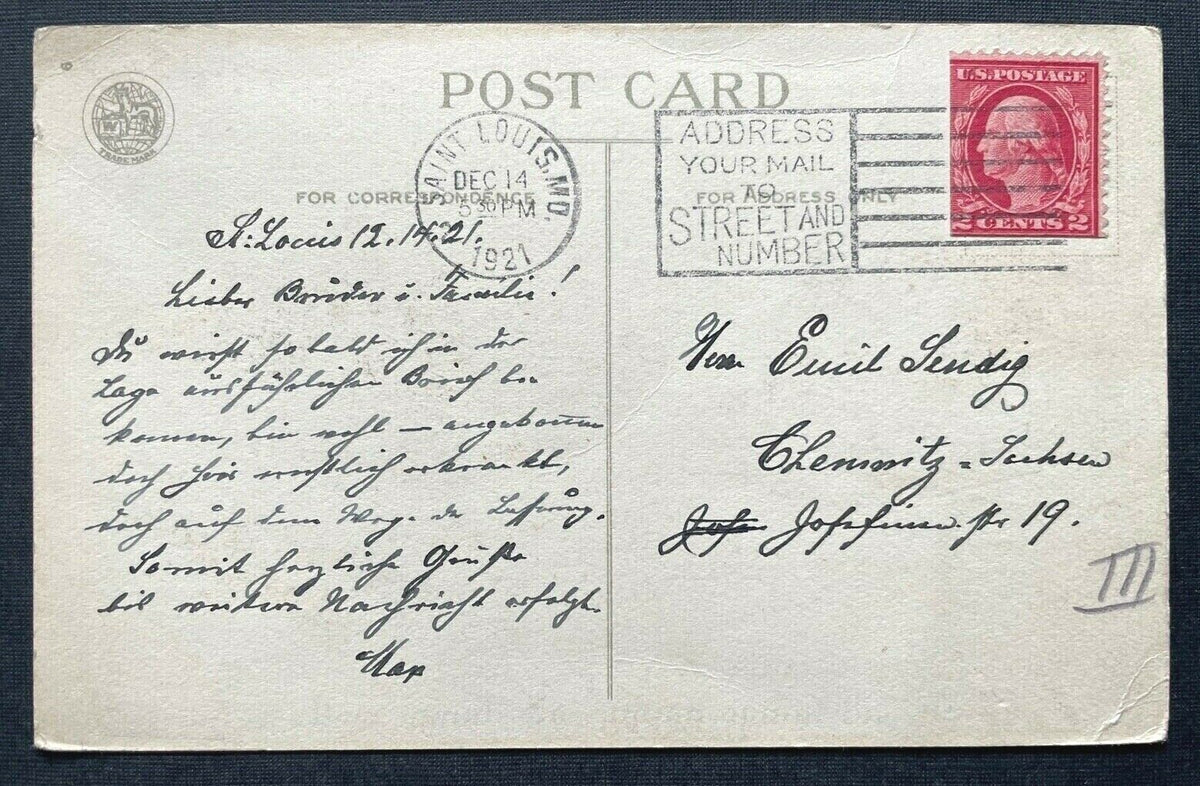 6
TRADE MARK
POST CARD
U.S. POSTAGE
2 CENTS 2
SAINT LOUIS, MO.
DEC 14
5 30 PM
1921
ADDRESS
YOUR MAIL
TO
STREET AND
NUMBER
FOR CORRESPONDENCE
FOR ADDRESS ONLY
St. Louis 12.14.21.
Lieber Bruder u. Familie!
Du wirst sobald ich in der
Lage ausführlichen Brief be-
komen, bin wohl – angekommen
doch hier ernstlich erkrankt,
doch auf dem Wege der Besserung.
Somit herzliche Grüße
bis weitere Nachricht erfolgt.
Max
Herrn Emil Sendig
Chemnitz = Sachsen
Josefinenstr 19.
III